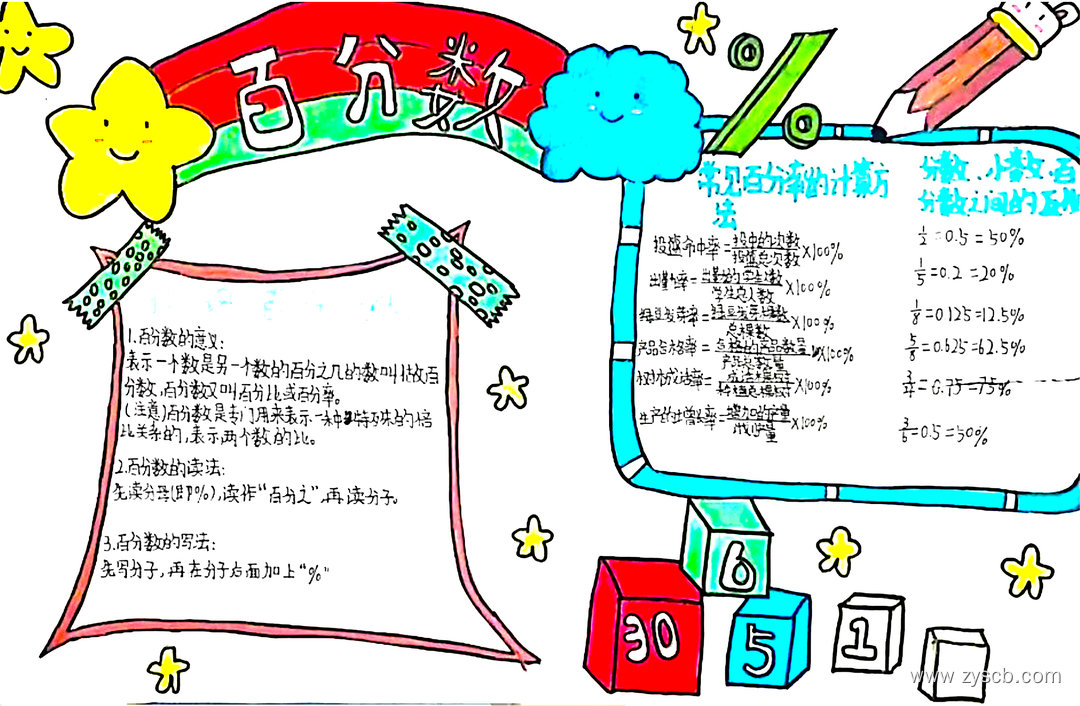 百分数
%
1.百分数的意义:
表示一个数是另一个数的百分之几的数叫做百
分数,百分数又叫百分比或百分率。
(注意)百分数是专门用来表示一种特殊的倍
比关系的,表示两个数的比。
2.百分数的读法:
先读分母(即%),读作“百分之”,再读分子。
3.百分数的写法:
先写分子,再在分子后面加上“%”
常见百分率的计算方
法
投篮命中率=投中的次数/投篮总次数×100%
出勤率=出勤的学生数/学生总人数×100%
绿豆发芽率= ×100%
产品合格率=合格的产品数量/产品总数量×100%
×100%
生产的增长率=增加的产量/ ×100%
分数、小数、百
分数之间的互
1/2=0.5=50%
1/5=0.2=20%
1/8=0.125=12.5%
5/8=0.625=62.5%
3/4=0.75=75%
3/6=0.5=50%
6
30
5
1
www.zyscb.com